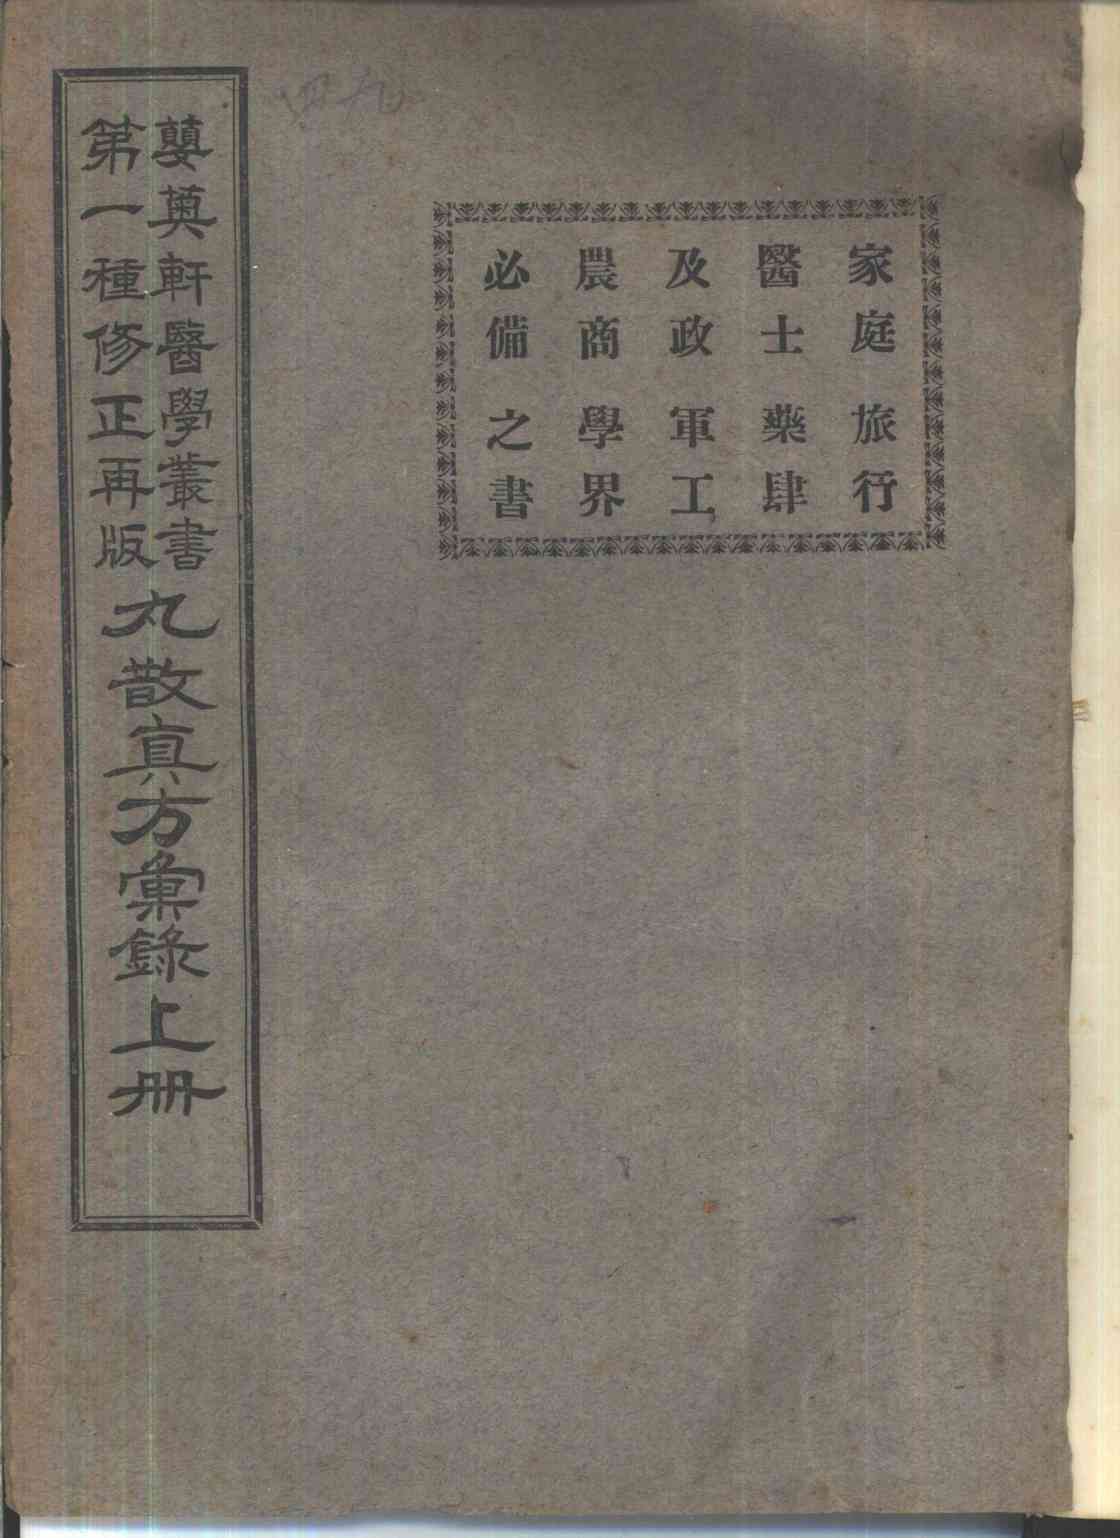 家庭旅行
醫士藥肆
及政軍工
農商學界
必備之書
蘡薁軒醫學叢書
第一種修正再版
丸散真方彙錄上册
四九